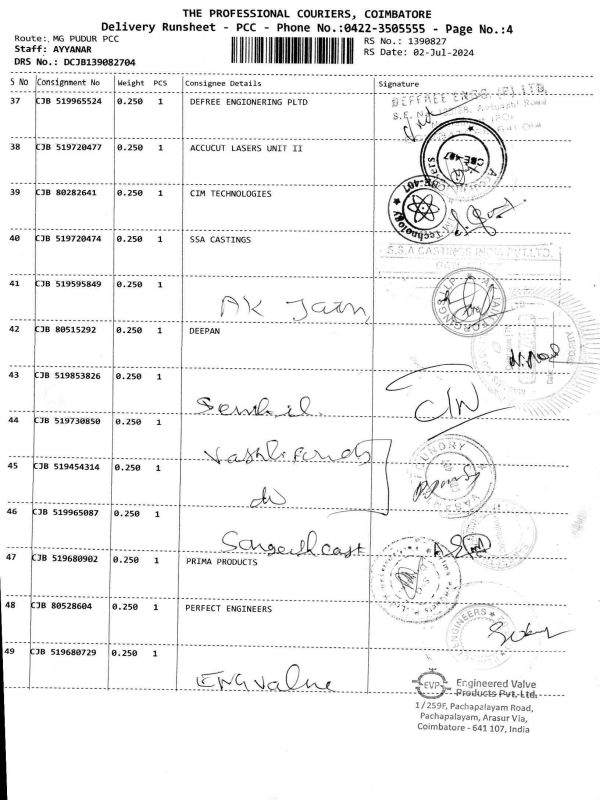 THE PROFESSIONAL COURIERS, COIMBATORE
Delivery Runsheet - PCC - Phone No.:0422-3505555 - Page No.:4
Route: MG PUDUR PCC
RS No.: 1390827
Staff: AYYANAR
RS Date: 02-Jul-2024
DRS No.: DCJB139082704
S No Consignment No Weight PCS Consignee Details Signature
37 CJB 519965524 0.250 1 DEFREE ENGIONERING PLTD
38 CJB 519720477 0.250 1 ACCUCUT LASERS UNIT II
39 CJB 80282641 0.250 1 CIM TECHNOLOGIES
40 CJB 519720474 0.250 1 SSA CASTINGS
41 CJB 519595849 0.250 1
AK Jain
42 CJB 80515292 0.250 1 DEEPAN
43 CJB 519853826 0.250 1
Senthil
44 CJB 519730850 0.250 1
45 CJB 519454314 0.250 1
46 CJB 519965087 0.250 1
Sangeeth cast
47 CJB 519680902 0.250 1 PRIMA PRODUCTS
48 CJB 80528604 0.250 1 PERFECT ENGINEERS
49 CJB 519680729 0.250 1
ENG value
EVP Engineered Valve
Products Pvt. Ltd.
1/259F, Pachapalayam Road,
Pachapalayam, Arasur Via,
Coimbatore - 641 107, India